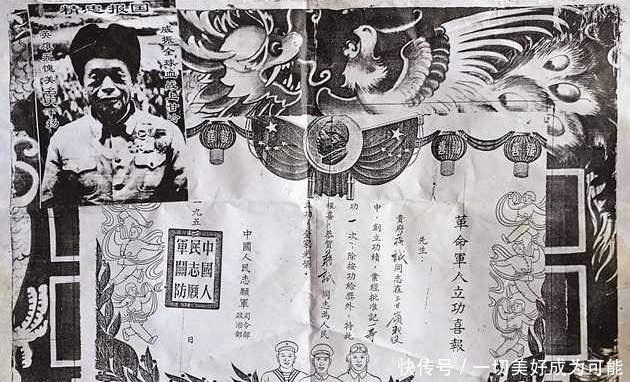 精忠报国
威振全球血战上甘岭
革命軍人立功喜報
先生：
貴府蒋誠同志在上甘嶺戰役
中，創立功績，業經批准記一等
功一次；除按功給獎外，特此
報喜，恭賀蒋誠同志為人民
立功，全家光榮。
中國人民志願軍司令部
政治部
一九五
日
中國人
民志願
軍關防
快传号 / 一切美好成为可能